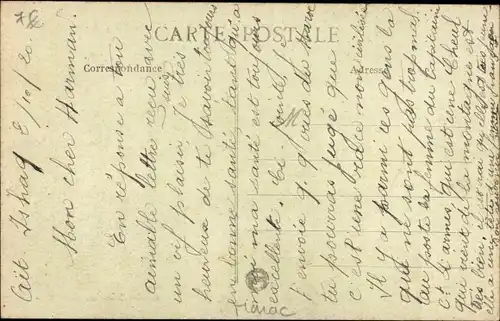 CARTE POSTALE
Correspondance
Adresse
Ait Ishaq 8/10/20
Mon cher Harman.
En réponse à ton
aimable lettre reçu avec
un vif plaisir. Je suis très
heureux de te savoir toujours
en bonne santé, tant qu'à
moi ma santé est toujours
excellente. Ci-jointe je
t'envoie q.q. vues du Maroc
tu pourras juge que
c'est une race non civilisée
Il y a parmi ces gens là
qui ne sont pas trop mal
au poste la femme du Capitaine
c'est une
qui vient de la montagne est
très bien
Maroc